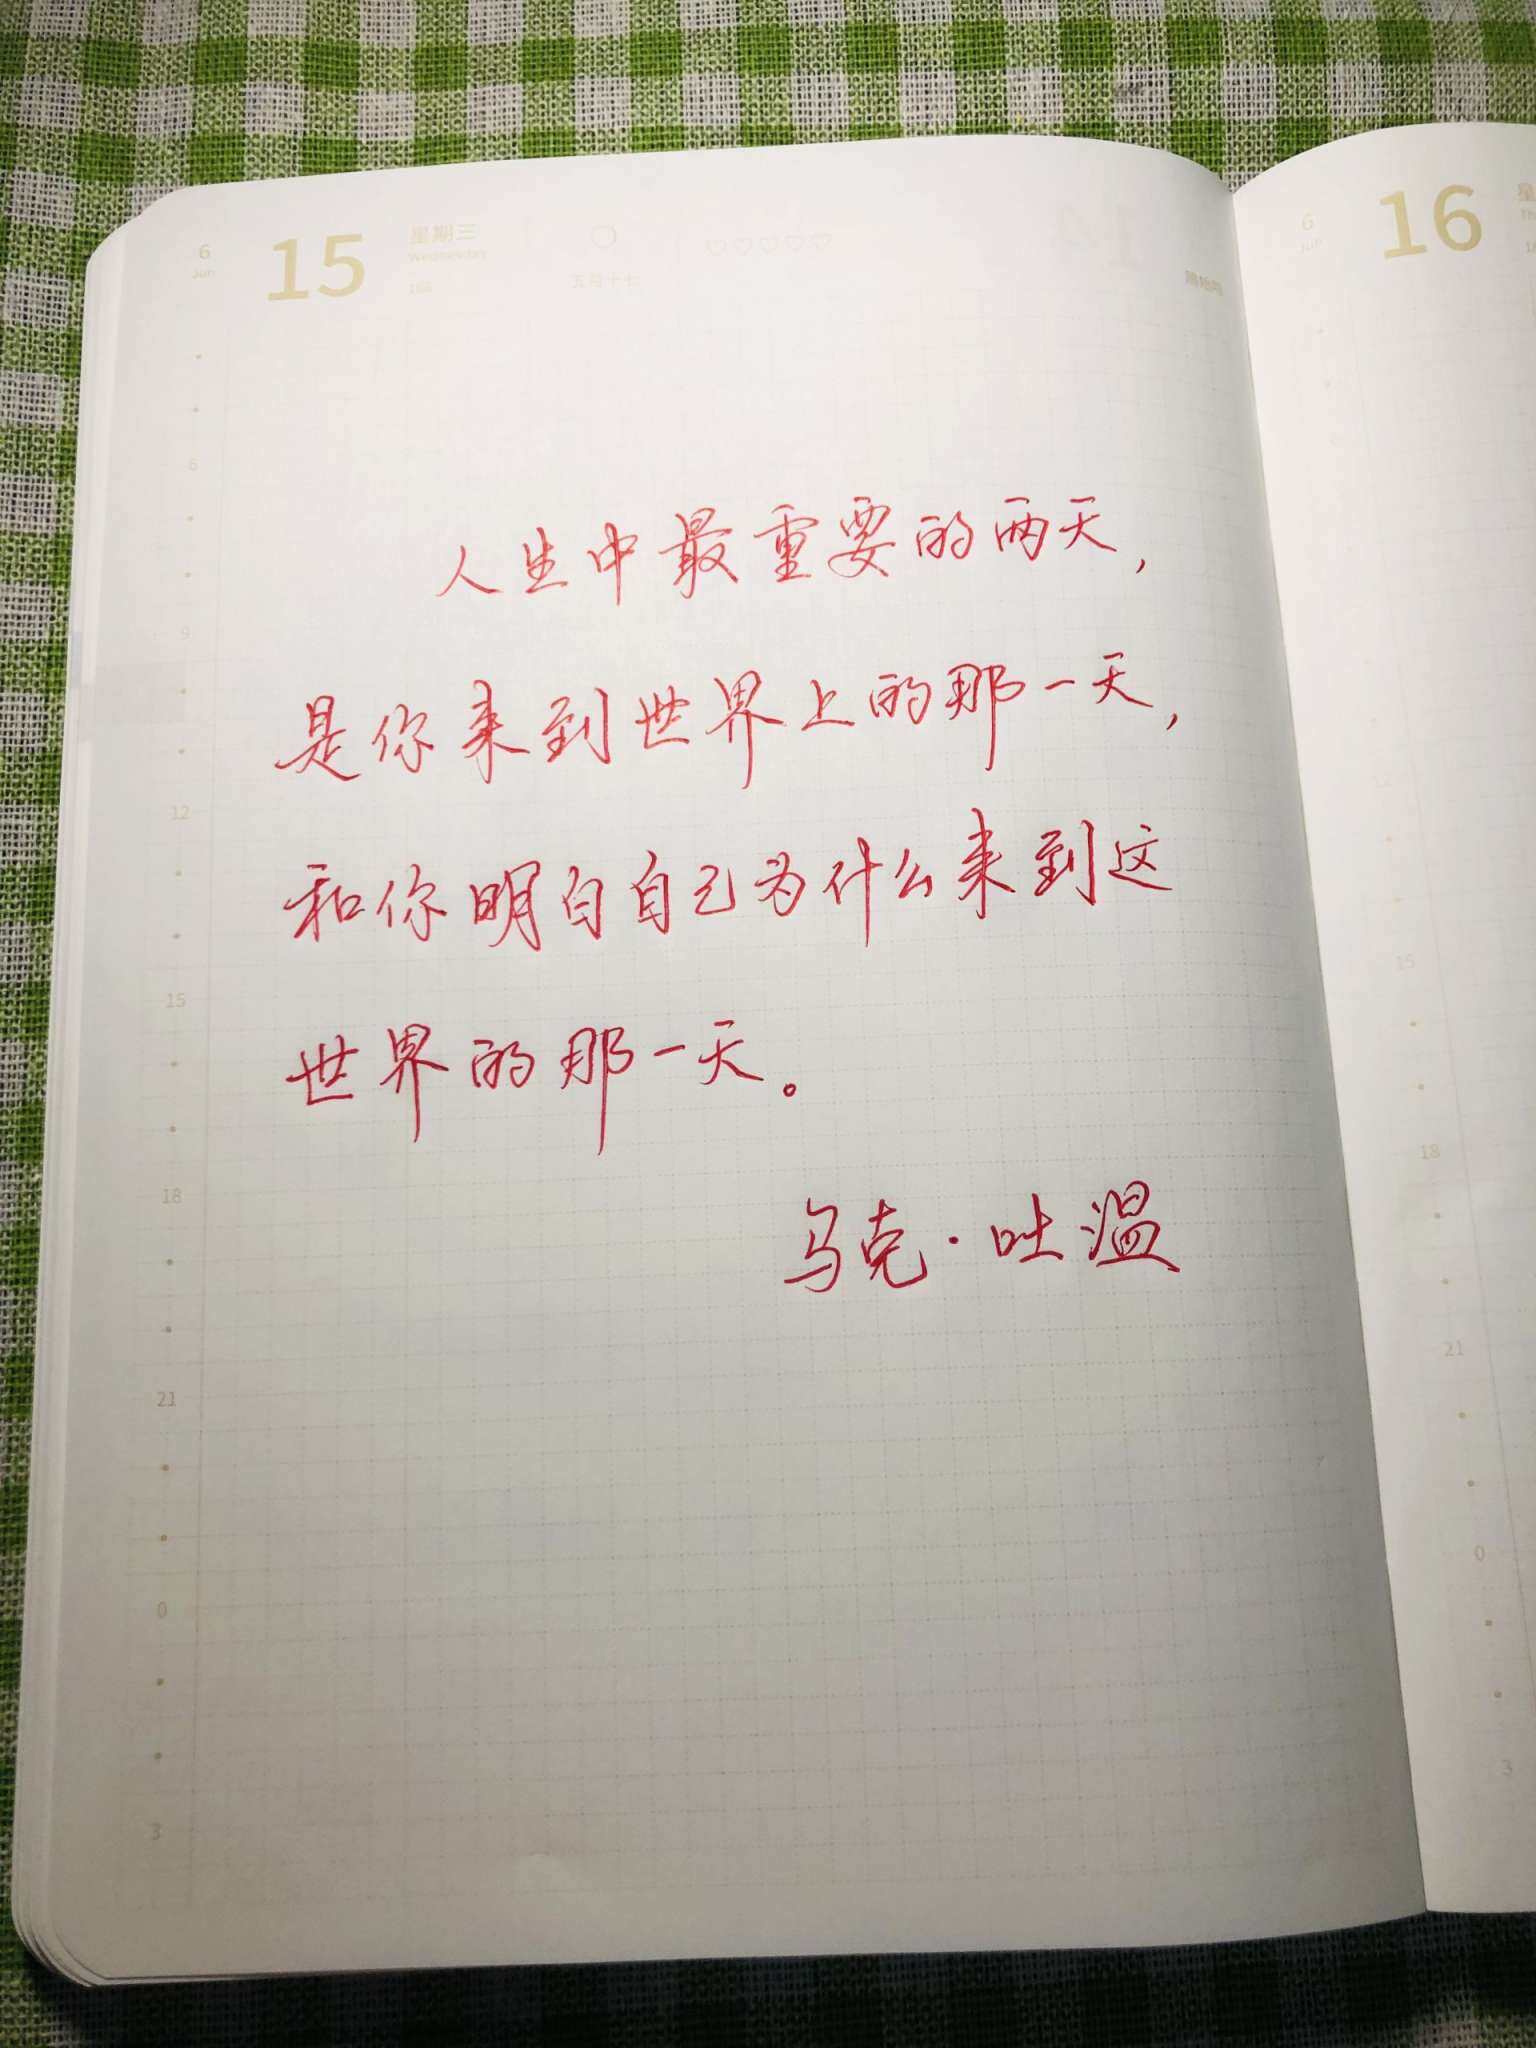 6
Jun
15
星期三
Wednesday
166
五月十七
6
Jun
16
人生中最重要的两天，
是你来到世界上的那一天，
和你明白自己为什么来到这
世界的那一天。
乌克·吐温
6
9
12
15
18
21
0
3
12
15
18
21
0
3